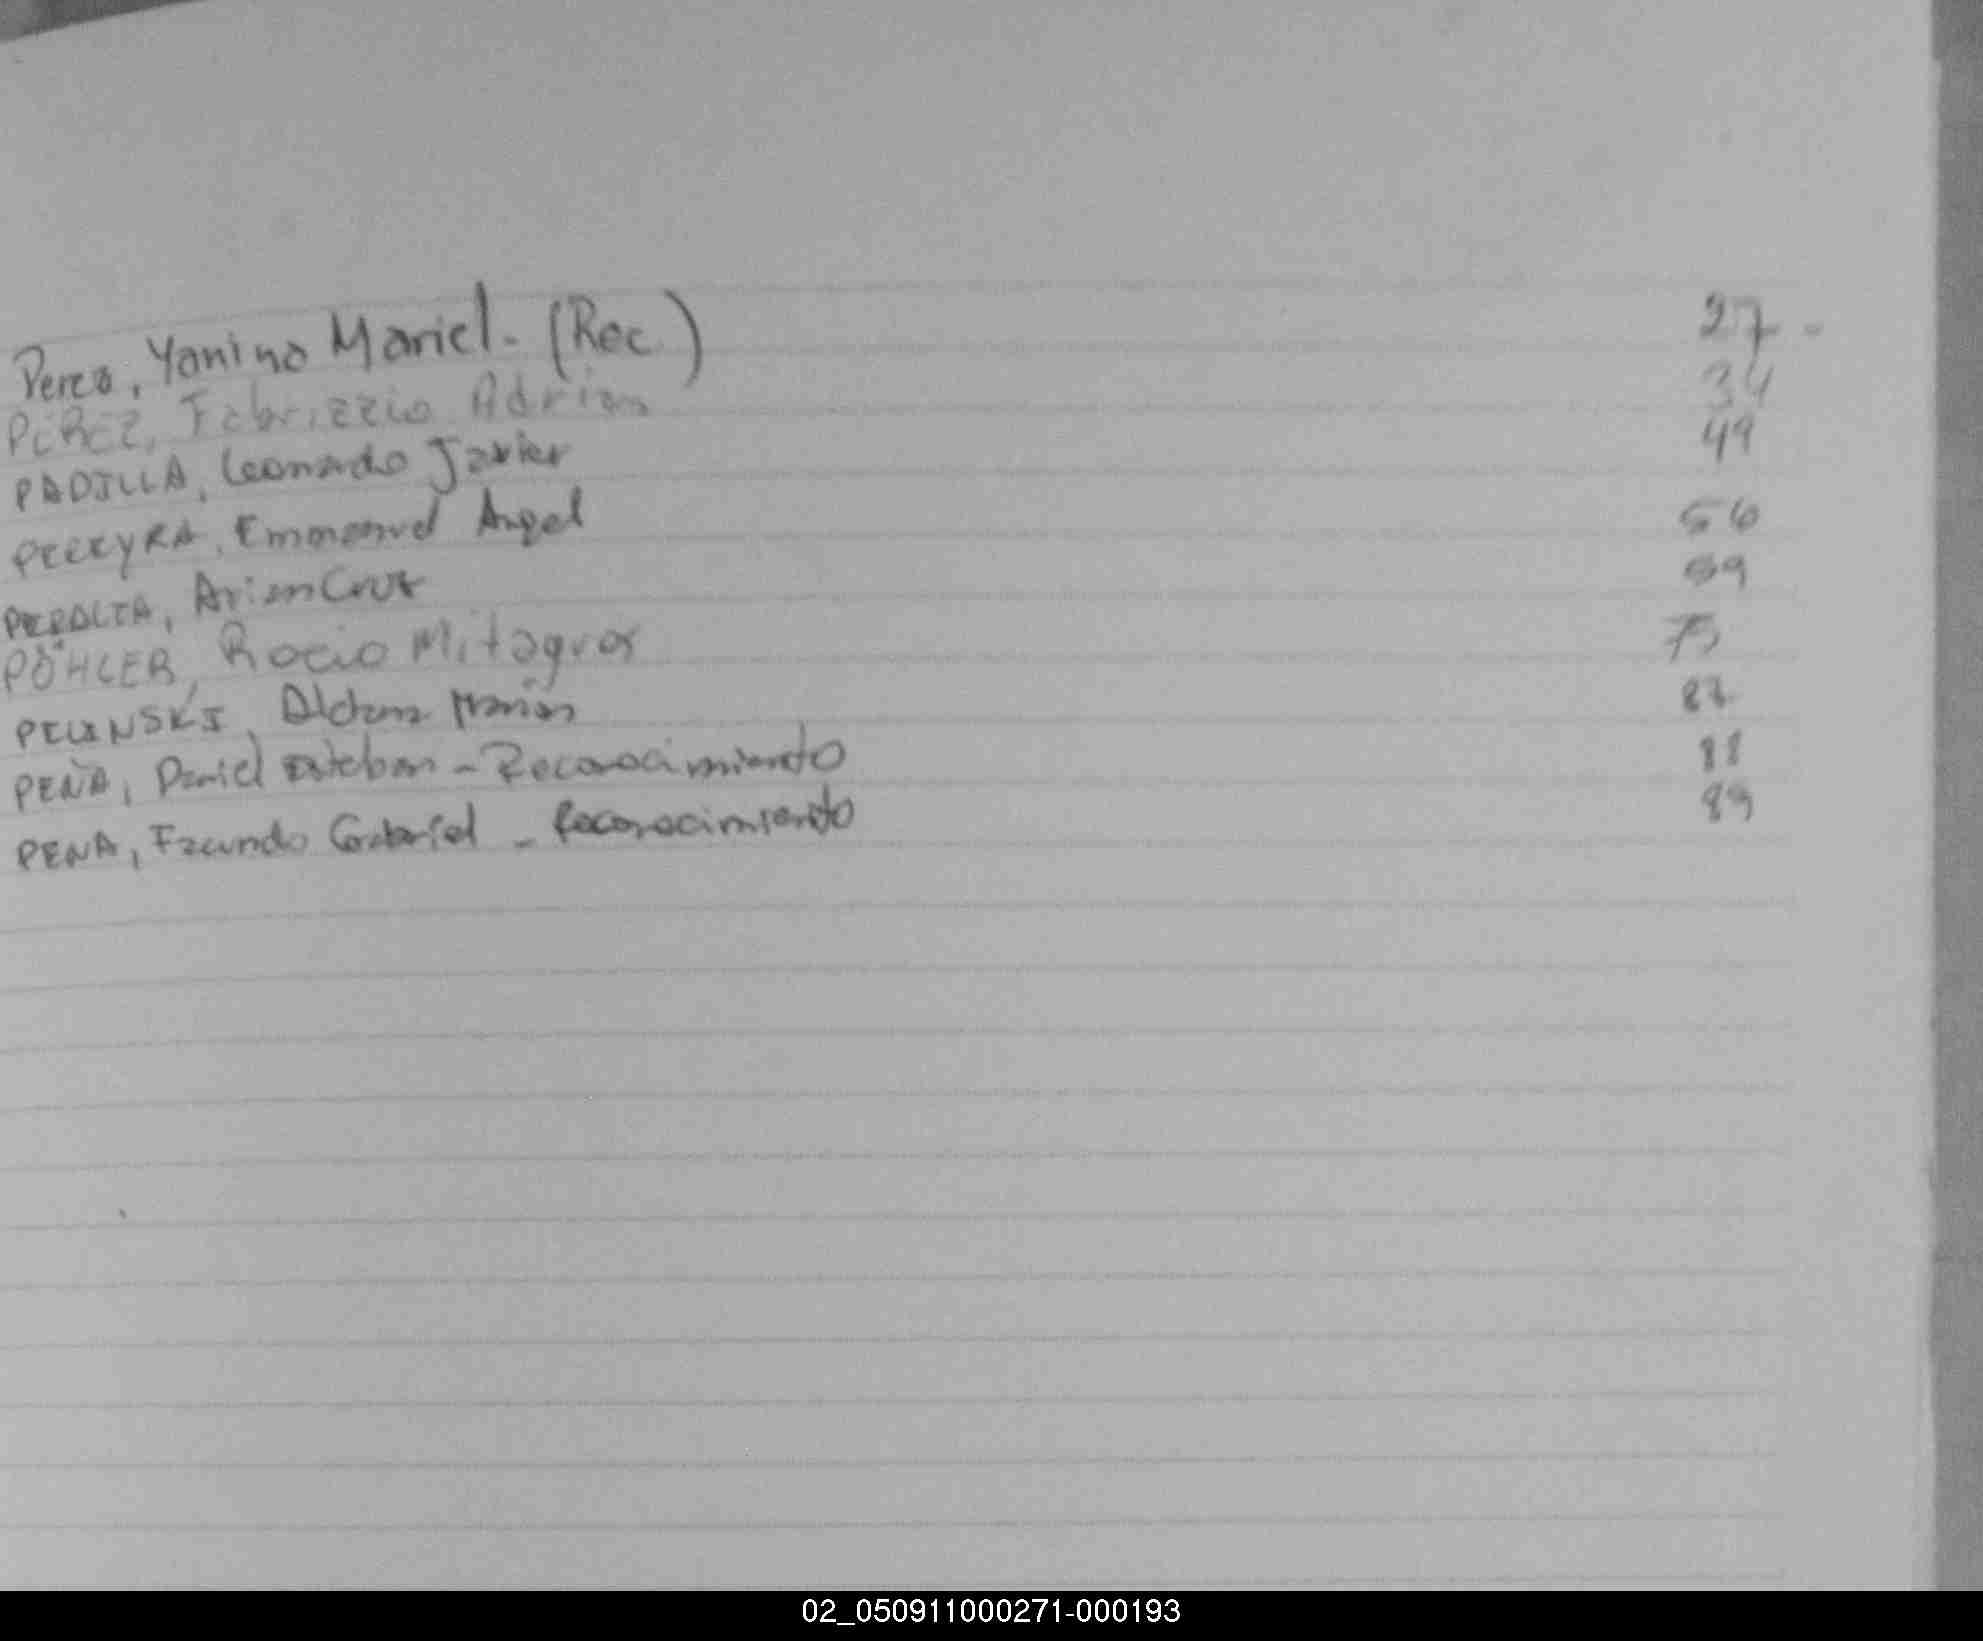 Perez, Yanina Mariel. (Rec.) 27 -
PÉREZ, Fabrizzio Adrian 34
PADILLA, Leonardo Javier 49
PEREYRA, Emmanuel Angel 56
PERALTA, Arian Cruz 59
PÖHLER, Rocio Milagros 75
Aldana Marian
PEÑA, Daniel Esteban - Reconocimiento 88
PEÑA, Facundo Gabriel - Reconocimiento 89
02_050911000271-000193